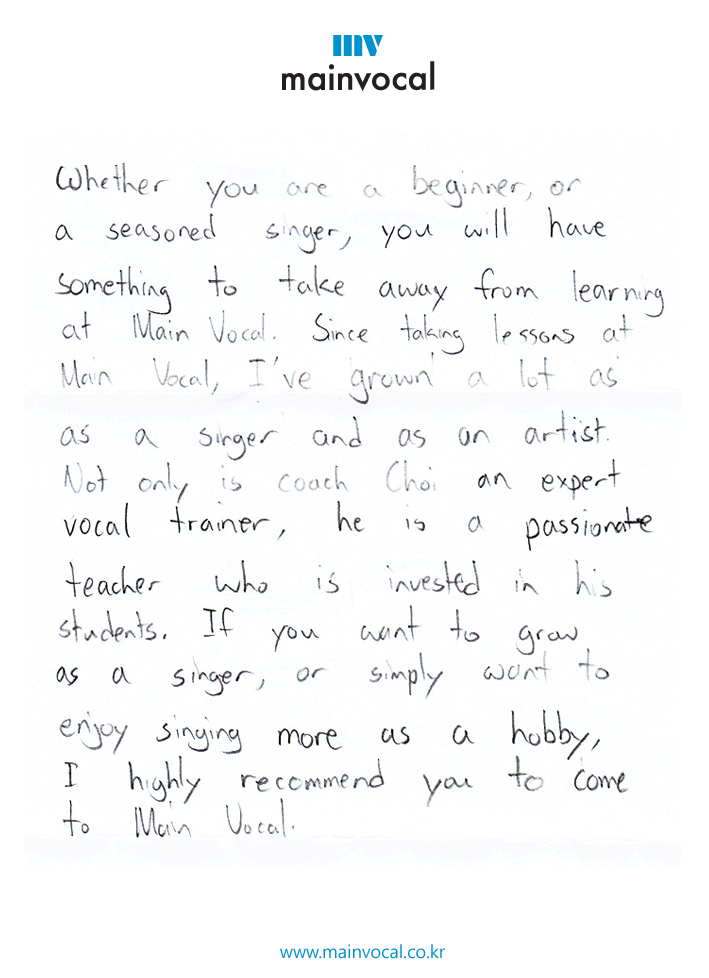 mv
mainvocal
Whether you are a beginner, or
a seasoned singer, you will have
something to take away from learning
at Main Vocal. Since taking lessons at
Main Vocal, I've grown a lot as
as a singer and as an artist.
Not only is coach Choi an expert
vocal trainer, he is a passionate
teacher who is invested in his
students. If you want to grow
as a singer, or simply want to
enjoy singing more as a hobby,
I highly recommend you to come
to Main Vocal.
www.mainvocal.co.kr